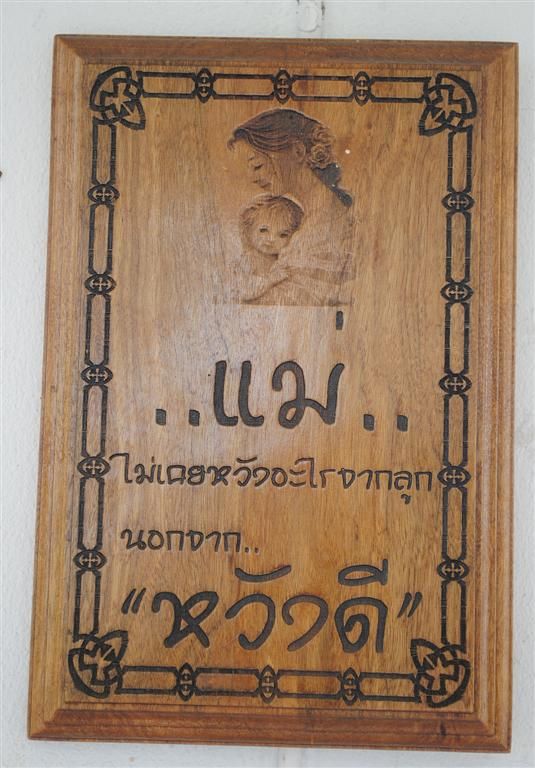 ..แม่..
ไม่เคยหวังอะไรจากลูก
นอกจาก..
“หวังดี”